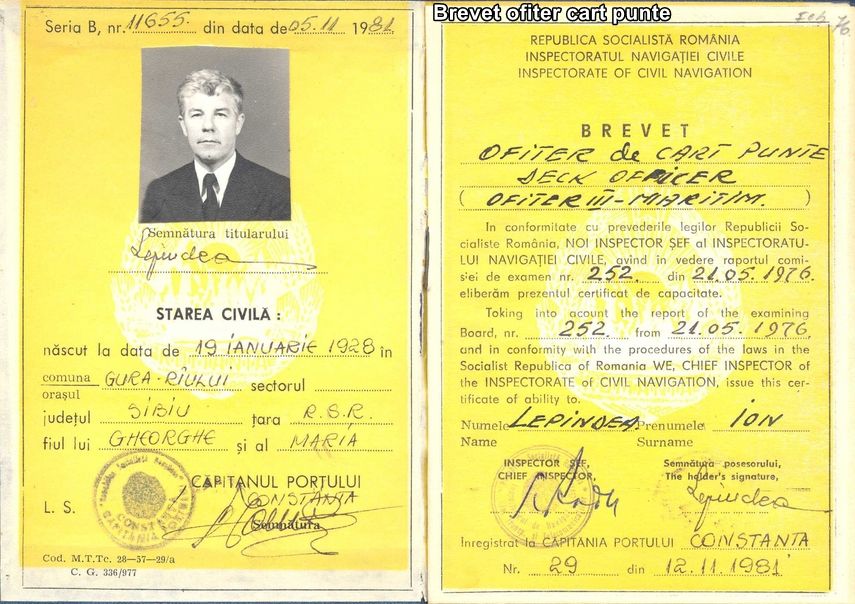 Brevet ofiter cart punte
Seria B, nr. 11655. din data de 05.11 1981
Semnătura titularului
Lepindea
STAREA CIVILĂ :
născut la data de 19 IANUARIE 1928 în
comuna GURA-RÎULUI sectorul
orașul
județul SIBIU țara R.S.R.
fiul lui GHEORGHE și al MARIA
CĂPITANUL PORTULUI
CONSTANȚA
L. S.
Semnătura
Cod. M.T.Tc. 28—57—29/a
C. G. 336/977
76
REPUBLICA SOCIALISTĂ ROMÂNIA
INSPECTORATUL NAVIGAȚIEI CIVILE
INSPECTORATE OF CIVIL NAVIGATION
BREVET
OFIȚER de CART PUNTE
DECK OFFICER
( OFIȚER III - MARITIM. )
In conformitate cu prevederile legilor Republicii So-
cialiste România, NOI INSPECTOR ȘEF al INSPECTORATU-
LUI NAVIGAȚIEI CIVILE, avind in vedere raportul comi-
siei de examen nr. 252. din 21.05.1976.
eliberăm prezentul certificat de capacitate.
Taking into acount the report of the examining
Board, nr. 252. from 21.05.1976,
and in conformity with the procedures of the laws in the
Socialist Republica of Romania WE, CHIEF INSPECTOR of
the INSPECTORATE of CIVIL NAVIGATION, issue this cer-
tificate of ability to.
Numele LEPINDEA Prenumele ION
Name Surname
INSPECTOR ȘEF, Semnătura posesorului,
CHIEF INSPECTOR, The holder's signature,
Lepindea
Inregistrat la CĂPITANIA PORTULUI CONSTANTA
Nr. 29 din 12.11.1981